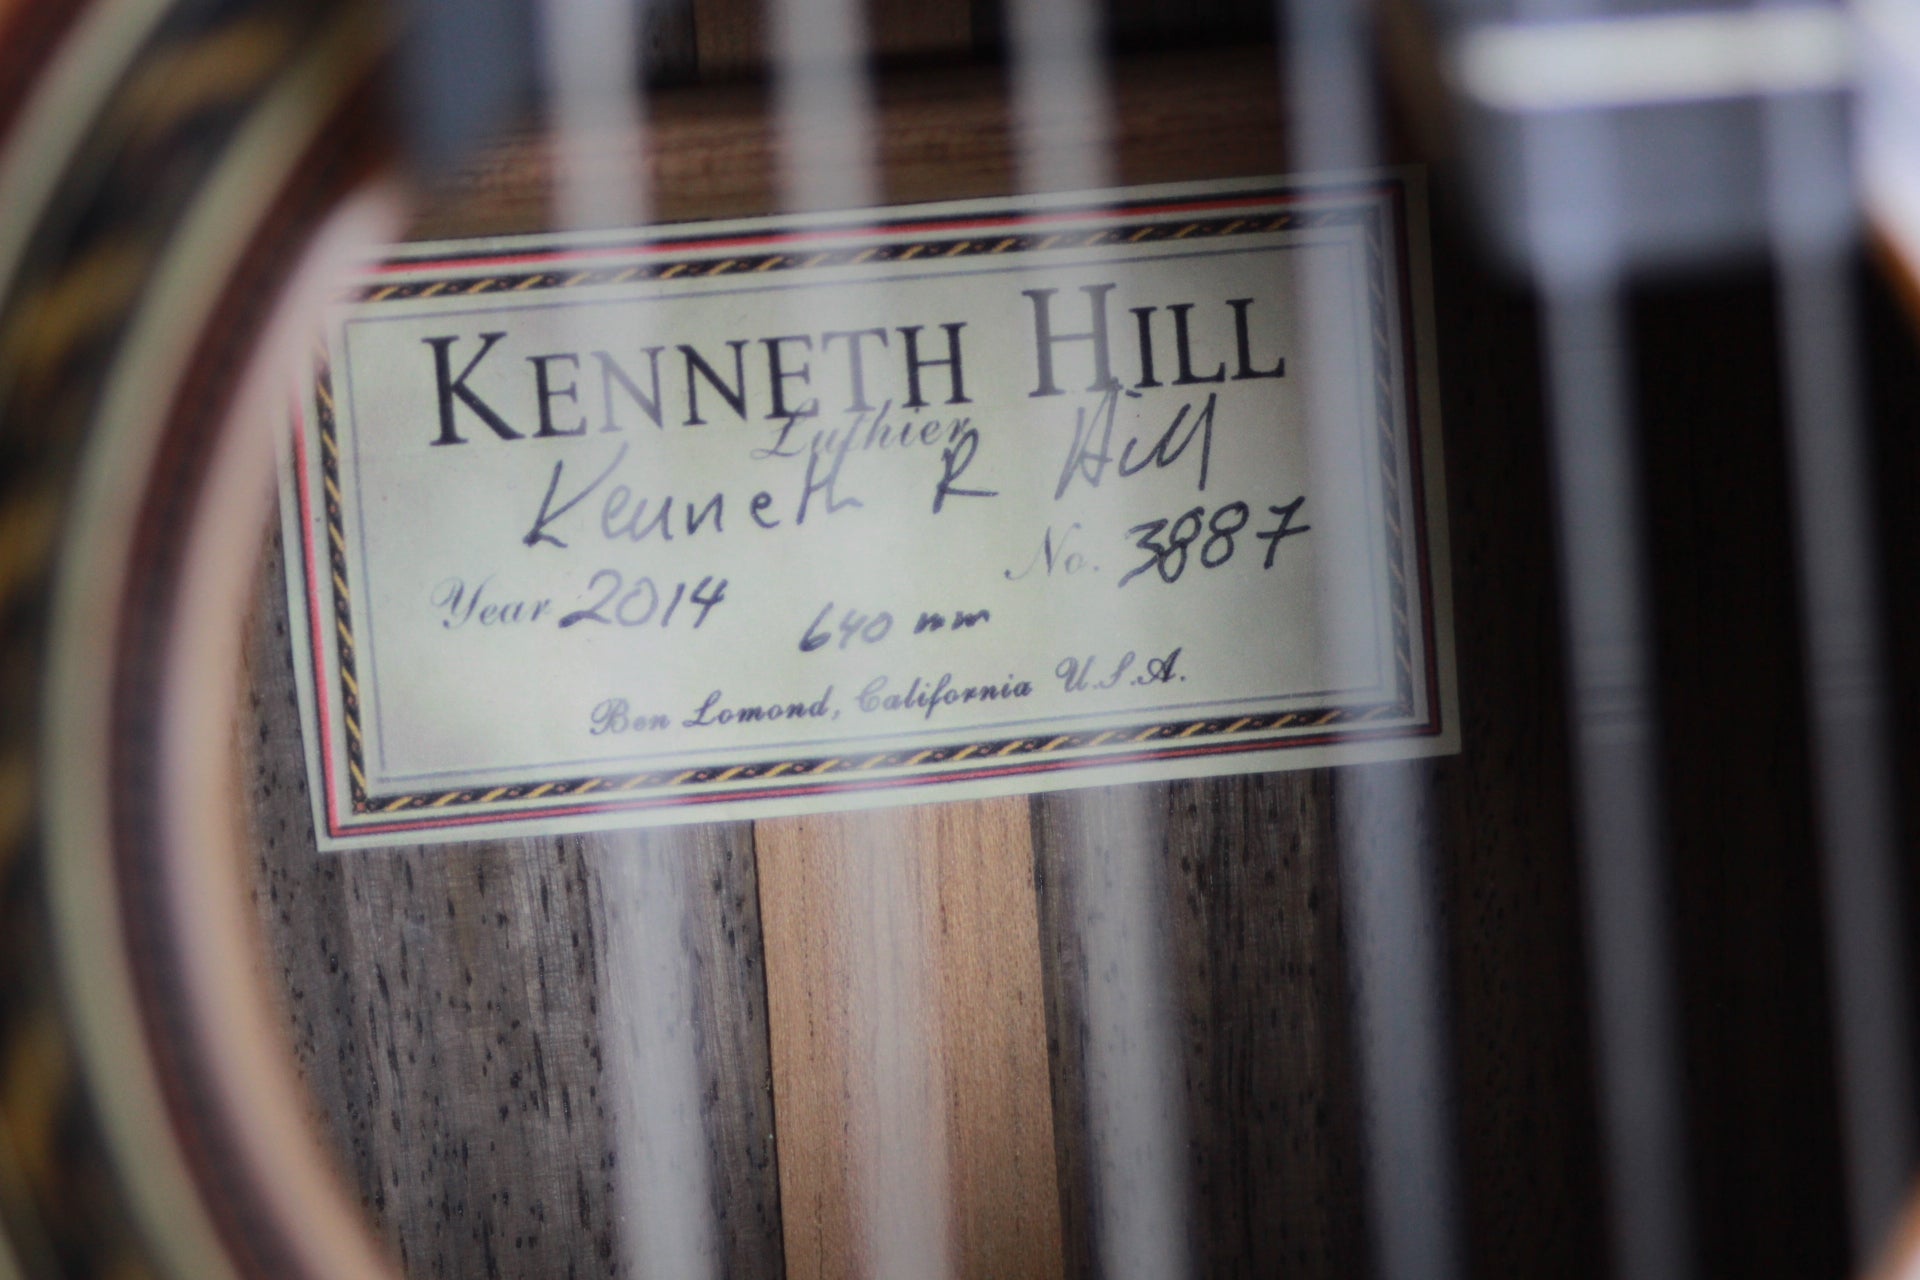 KENNETH HILL
Luthier
Kenneth R Hill
No. 3887
Year 2014
640 mm
Ben Lomond, California U.S.A.